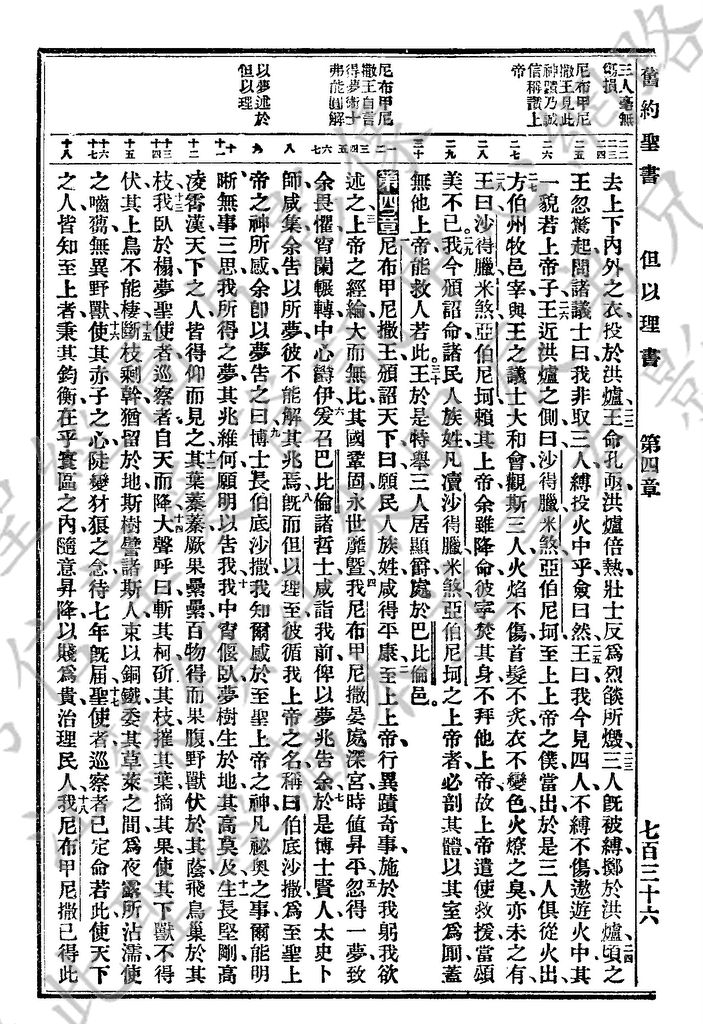 舊約聖書 但以理書 第四章 七百三十六
三人毫無
傷損
尼布甲尼
撒王見此
神蹟乃誠
信稱讚上
帝
尼布甲尼
撒王自言
得夢術士
弗能圓解
以夢述於
但以理
去上下內外之衣投於洪爐王命孔亟洪爐倍熱壯士反爲烈燄所燬三人旣被縛擲於洪爐頃之
王忽驚起問諸議士曰我非取三人縛投火中乎僉曰然王曰我今見四人不縛不傷遨遊火中其
一貌若上帝子王近洪爐之側曰沙得臘米煞亞伯尼珂至上上帝之僕當出於是三人俱從火出
方伯州牧邑宰與王之議士大和會觀斯三人火焰不傷首髮不炙衣不變色火燎之臭亦未之有
王曰沙得臘米煞亞伯尼珂賴其上帝余雖降命彼寧焚其身不拜他上帝故上帝遣使救援當頌
美不已我今頒詔命諸民人族姓凡瀆沙得臘米煞亞伯尼珂之上帝者必剖其體以其室爲圊蓋
無他上帝能救人若此王於是特舉三人居顯爵處於巴比倫邑
第四章尼布甲尼撒王頒詔天下曰願民人族姓咸得平康至上上帝行異蹟奇事施於我躬我欲
述之上帝之經綸大而無比其國鞏固永世靡曁我尼布甲尼撒晏處深宮時値昇平忽得一夢致
余畏懼宵闌輾轉中心欝伊爰召巴比倫諸哲士咸詣我前俾以夢兆告余於是博士賢人太史卜
師咸集余告以所夢彼不能解其兆焉旣而但以理至彼循我上帝之名稱曰伯底沙撒爲至聖上
帝之神所感余卽以夢告之曰博士長伯底沙撒我知爾感於至聖上帝之神凡祕奧之事爾能明
晰無事三思我所得之夢其兆維何願明以告我我中宵偃臥夢樹生於地其高莫及生長堅剛高
凌霄漢天下之人皆得仰而見之其葉蓁蓁厥果纍纍百物得而果腹野獸伏於其蔭飛鳥巢於其
枝我臥於榻夢聖使者巡察者自天而降大聲呼曰斬其柯斫其枝摧其葉摘其果使其下獸不得
伏其上鳥不能棲斷枝剩幹猶留於地斯樹譬諸斯人束以銅鐵委其草萊之間爲夜露所沾濡使
之嚙芻無異野獸使其赤子之心陡變犲狼之念待七年旣屆聖使者巡察者已定命若此使天下
之人皆知至上者秉其鈞衡在乎寰區之內隨意昇降以賤爲貴治理民人我尼布甲尼撒已得此